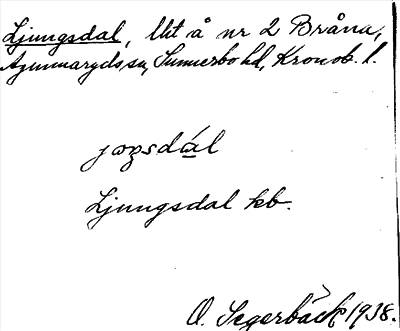 Ljungsdal, lht å nr 2 Bråna,
Agunnaryds sn, Sunnerbo hd, Kronob. l.
Ljungsdal kb.
O. Segerbäck 1938.